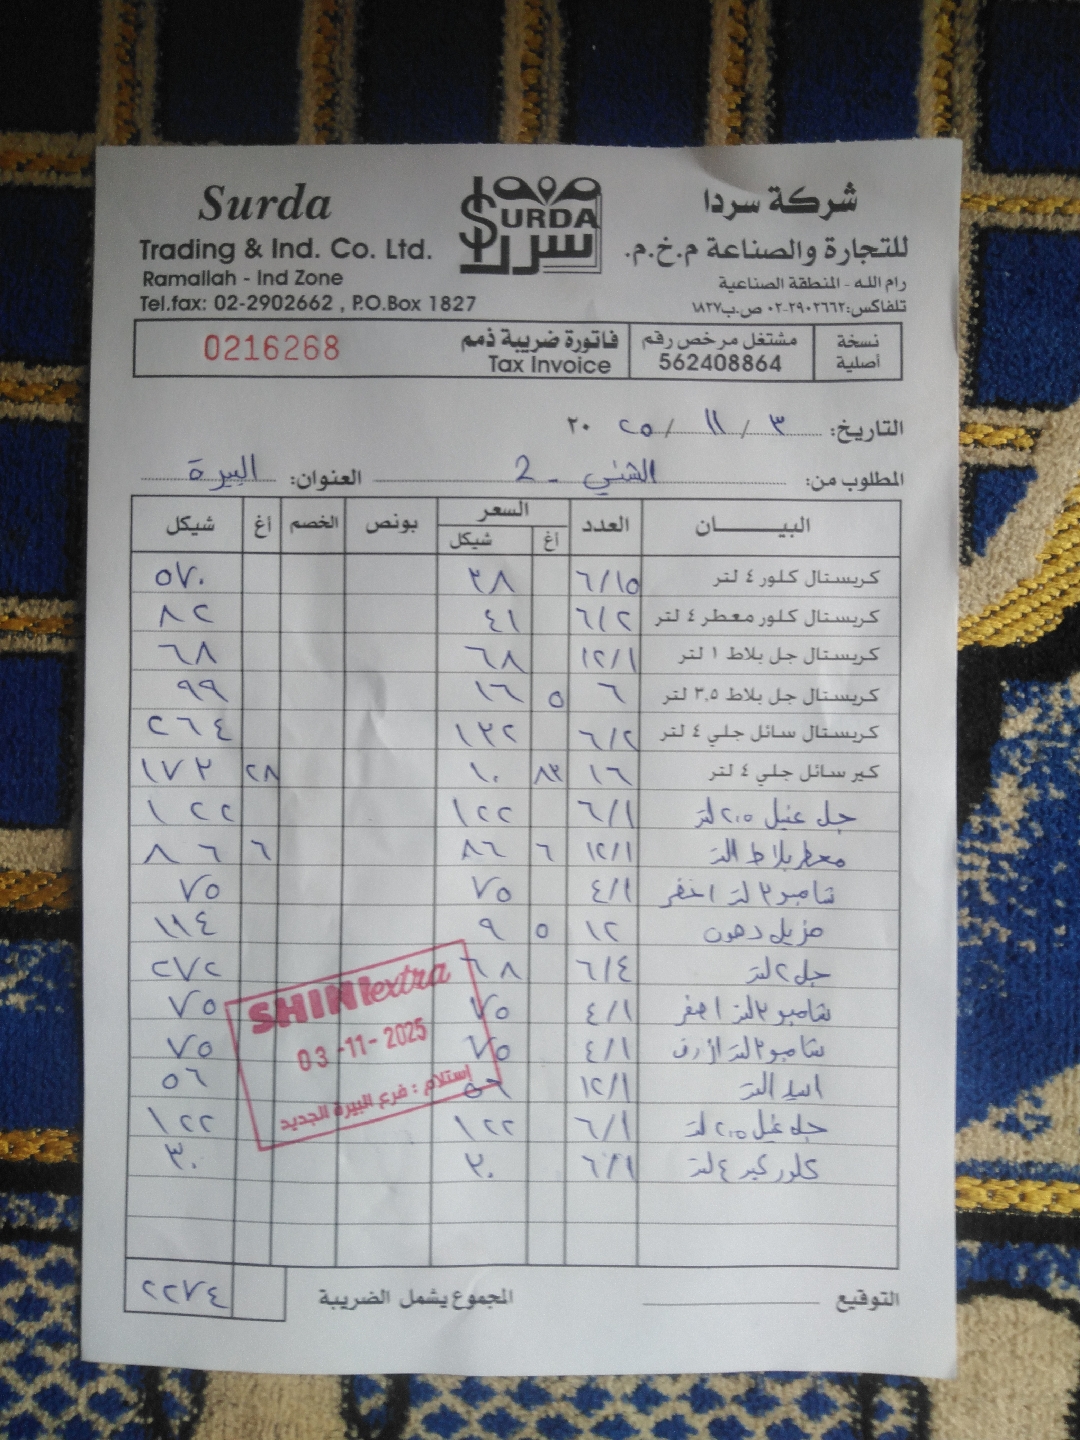 Surda
Trading & Ind. Co. Ltd.
Ramallah - Ind Zone
Tel.fax: 02-2902662 , P.O.Box 1827
SURDA
سردا
شركة سردا
للتجارة والصناعة م.خ.م.
رام الله - المنطقة الصناعية
تلفاكس:٢٩٠٢٦٦٢-٠٢ ص.ب١٨٢٧
نسخة أصلية
مشتغل مرخص رقم 562408864
فاتورة ضريبة ذمم
Tax Invoice
0216268
التاريخ: ٣ / ١١ / ٢٠٢٥
المطلوب من: الشني - 2 العنوان: البيرة
البيـــــان العدد السعر بونص الخصم أغ شيكل
أغ شيكل
كريستال كلور ٤ لتر ٦/١٥ ٣٨ ٥٧٠
كريستال كلور معطر ٤ لتر ٦/٢ ٤١ ٨٢
كريستال جل بلاط ١ لتر ١٢/١ ٦٨ ٦٨
كريستال جل بلاط ٣,٥ لتر ٦ ٥ ١٦ ٩٩
كريستال سائل جلي ٤ لتر ٦/٢ ١٣٢ ٢٦٤
كير سائل جلي ٤ لتر ١٦ ٨٣ ١٠ ٢٨ ١٧٣
جل غسيل ٢,٥ لتر ٦/١ ١٢٢ ١٢٢
معطر بلاط التر ١٢/١ ٦ ٨٦ ٦ ٨٦
شامبو ٣ لتر اخضر ٤/١ ٧٥ ٧٥
مزيل دهون ١٢ ٥ ٩ ١١٤
جل ٢ لتر ٦/٤ ٦٨ ٢٧٢
شامبو ٣ لتر اصفر ٤/١ ٧٥ ٧٥
شامبو ٣ لتر ازرق ٤/١ ٧٥ ٧٥
اسيد التر ١٢/١ ٥٦ ٥٦
جل غسيل ٢,٥ لتر ٦/١ ١٢٢ ١٢٢
كلور كير ٤ لتر ٦/١ ٣٠ ٣٠
SHINI extra
03-11-2025
إستلام : فرع البيرة الجديد
التوقيع المجموع يشمل الضريبة ٢٢٧٤